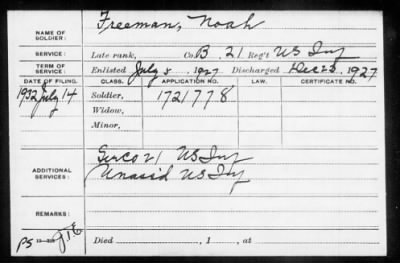 NAME OF SOLDIER: Freeman, Noah
SERVICE: Late rank, Co. B, 21 Reg't US Inf
TERM OF SERVICE: Enlisted July 5, 1927 Discharged Dec 23, 1927
DATE OF FILING. CLASS. APPLICATION NO. LAW. CERTIFICATE NO.
1932 July 14 Soldier, 1721778
Widow,
Minor,
ADDITIONAL SERVICES: 21 US Inf
Unassd US Inf
REMARKS:
Died , 1 , at